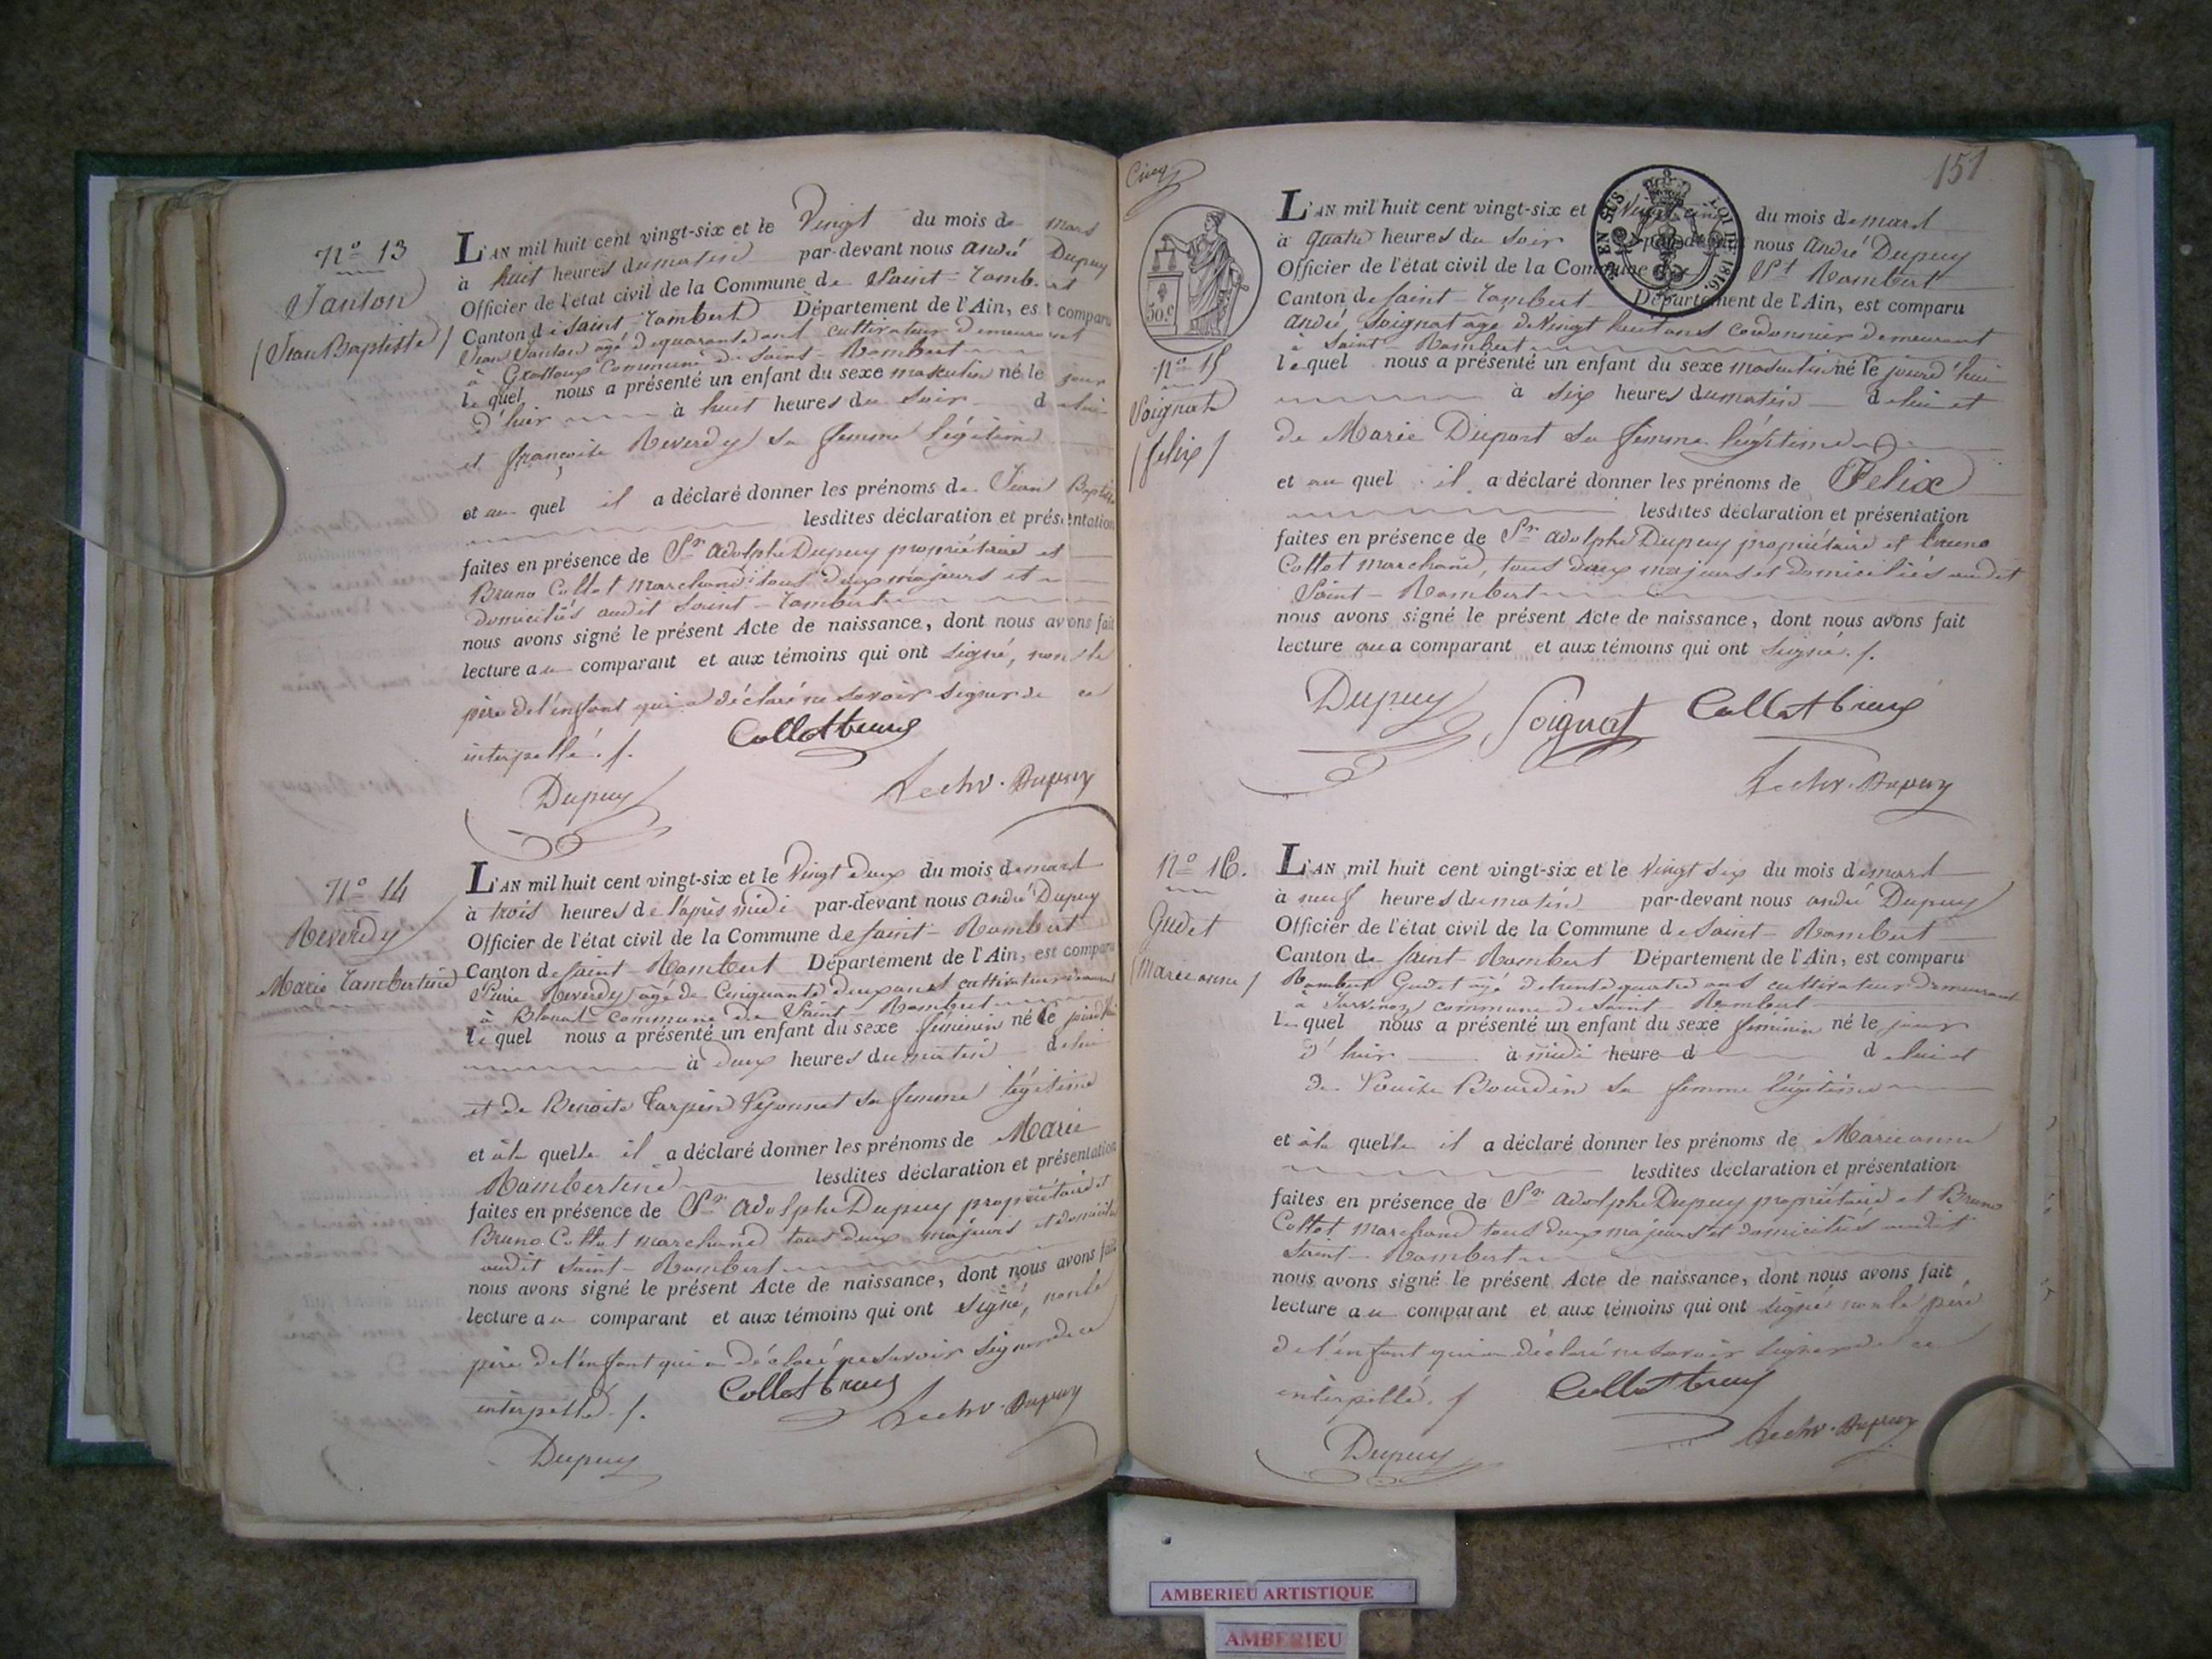 N.o 13
Janton
(Jean Baptiste)
L'AN mil huit cent vingt-six et le Vingt du mois de mars
à huit heures du matin par-devant nous andré Dupuy
Officier de l'état civil de la Commune de Saint-Rambert
Canton de Saint-Rambert Département de l'Ain, est comparu
Jean Janton agé de quarante ans cultivateur demeurant
à Grattoux Commune de Saint-Rambert
lequel nous a présenté un enfant du sexe masculin né le jour
d'hier à huit heures du soir de lui
et françoise Reverdy sa femme légitime
et au quel il a déclaré donner les prénoms de Jean Baptiste
lesdites déclaration et présentation
faites en présence de Sr. adolphe Dupuy propriétaire et
Bruno Collot marchand tous deux majours et
domiciliés audit Saint-Rambert
nous avons signé le présent Acte de naissance, dont nous avons fait
lecture au comparant et aux témoins qui ont signé, non le
père de l'enfant qui a déclaré ne savoir signer de ce
interpellé./.
Collot bruno
Dupuy
Dupuy
N.o 14
Reverdy
Marie Rambertine
L'AN mil huit cent vingt-six et le Vingt deux du mois de mars
à trois heures de l'après midi par-devant nous andré Dupuy
Officier de l'état civil de la Commune de Saint-Rambert
Canton de Saint-Rambert Département de l'Ain, est comparu
Pierre Reverdy agé de Cinquante deux ans cultivateur demeurant
à Blanat commune de Saint-Rambert
lequel nous a présenté un enfant du sexe féminin né le jourd'hui
à deux heures du matin de lui
et de Benoite Turpin Veyonnet sa femme légitime
et à la quelle il a déclaré donner les prénoms de Marie
Rambertine lesdites déclaration et présentation
faites en présence de Sr. adolphe Dupuy propriétaire et
Bruno Collot marchand tous deux majeurs et domiciliés
audit Saint-Rambert
nous avons signé le présent Acte de naissance, dont nous avons fait
lecture au comparant et aux témoins qui ont signé, non le
père de l'enfant qui a déclaré ne savoir signer de ce
interpellé./.
Collot bruno
Dupuy
Dupuy
Cinq
151
50.c
EN SUS
LOI DE 1816.
n.o 15
Soignat
(felix)
L'AN mil huit cent vingt-six et le Vingt cinq du mois de mars
à quatre heures du soir par-devant nous andré Dupuy
Officier de l'état civil de la Commune de St Rambert
Canton de Saint-Rambert Département de l'Ain, est comparu
andré Soignat agé de Vingt huit ans cordonnier demeurant
à Saint-Rambert
lequel nous a présenté un enfant du sexe masculin né le jourd'hui
à six heures du matin de lui et
de Marie Duport sa femme légitime
et au quel il a déclaré donner les prénoms de Felix
lesdites déclaration et présentation
faites en présence de Sr. adolphe Dupuy propriétaire et bruno
Collot marchand, tous deux majeurs et domiciliés audit
Saint-Rambert
nous avons signé le présent Acte de naissance, dont nous avons fait
lecture au comparant et aux témoins qui ont signé./.
Dupuy
Soignat
Collot bruno
Dupuy
N.o 16.
Gudet
(marieanne)
L'AN mil huit cent vingt-six et le Vingt six du mois de mars
à neuf heures du matin par-devant nous andré Dupuy
Officier de l'état civil de la Commune de Saint-Rambert
Canton de Saint-Rambert Département de l'Ain, est comparu
Rambert Gudet agé de trente quatre ans cultivateur demeurant
à commune de Saint-Rambert
lequel nous a présenté un enfant du sexe féminin né le jour
d'hier à midi heure d de lui et
de Louise Bourdin sa femme légitime
et à la quelle il a déclaré donner les prénoms de Marieanne
lesdites déclaration et présentation
faites en présence de Sr. adolphe Dupuy propriétaire et Bruno
Collot marchand tous deux majeurs et domiciliés audit
Saint-Rambert
nous avons signé le présent Acte de naissance, dont nous avons fait
lecture au comparant et aux témoins qui ont signé non le père
de l'enfant qui a déclaré ne savoir signer de ce
interpellé./
Collot bruno
Dupuy
Dupuy
AMBERIEU ARTISTIQUE
AMBERIEU